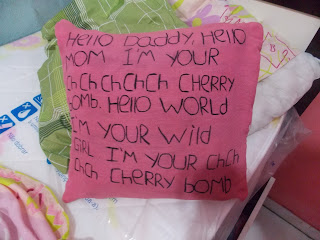 Hello Daddy, Hello
MOM I'M YOUR
ChChChChCh CHERRY
BOMB. Hello WORLD
I'M YOUR Wild
GIRL I'M YOUR ChCh
ChCh CHERRY bomb